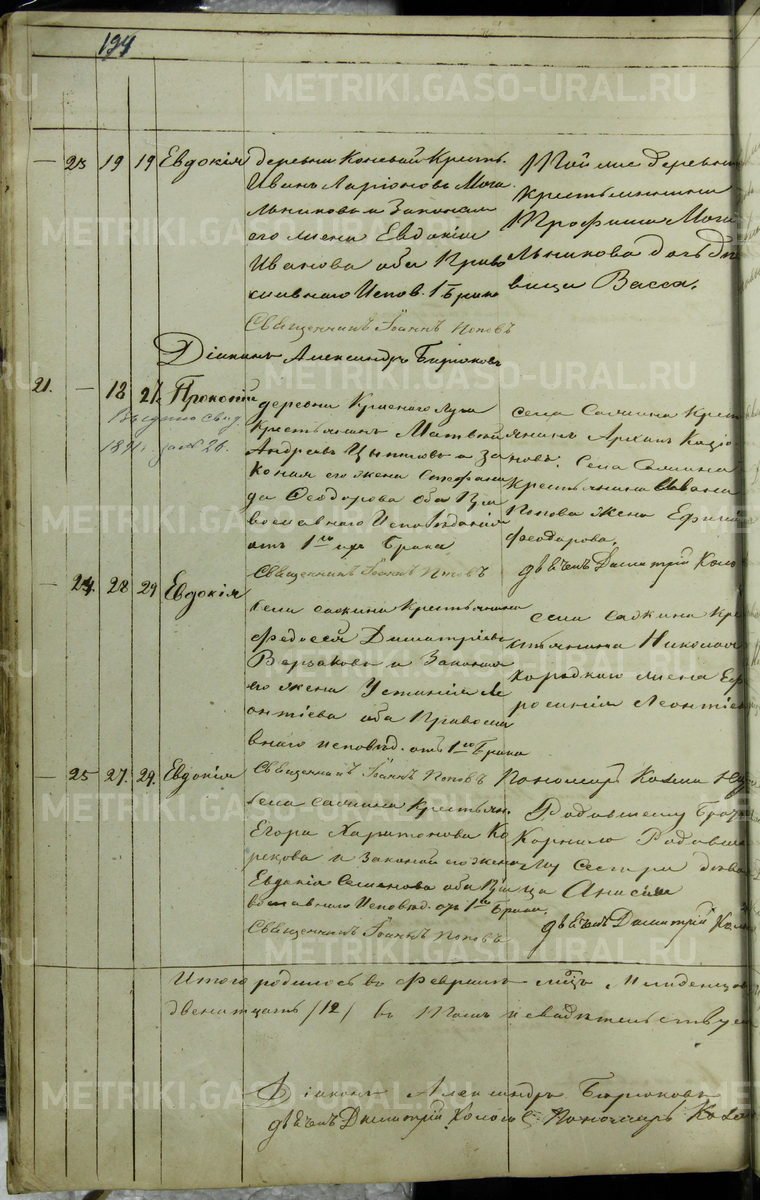 194
— 23 19 19 Евдокія
деревни Коневой Кресть.
Иванъ Ларіоновъ Моги
льниковъ и Законная
его жена Евдокія
Иванова оба Право
славнаго Испов. 1 Брака
Той же деревни
Крестьянина
Трофима Моги
льникова дочь дѣ
вица Васса.
Священникъ Іоаннъ Поповъ
Діаконъ Александръ Бирюковъ
21. — 18 21. Прокопій
Выдано свид.
1891 г. за № 26.
деревни Краснаго Луга
Крестьянинъ Матвѣй
Андреевъ и За
конная его жена Стефани
да Ѳеодорова оба Пра
вославнаго Исповѣданія
отъ 1го ихъ Брака
села Салкина Крест
янинъ Архипъ
села Салкина
Крестьянина Ивана
Попова жена
Феодорова.
Священникъ Іоаннъ Поповъ
дьячекъ Димитрій
— 24. 28 29 Евдокія
села Салкина Крестьянинъ
Федосей Димитріевъ
и Законная
его жена Устинія Ле
онтіева оба Правосла
внаго исповѣд. отъ 1го Брака
села Салкина Кре
стьянина Николая
жена Еф
росинія Леонтіева
Священникъ Іоаннъ Поповъ
Пономарь Козма
— 25 27. 29. Евдокія
села Салкина Крестьян.
Егора Харитонова Ко
рякова и Законной его жена
Евдокія Семенова оба Пра
вославнаго Исповѣд. отъ 1го Брака.
Родившему Братъ
Корнило Родивше
му Сестра дѣви
ца Анисья
Священникъ Іоаннъ Поповъ
дьячекъ Димитрій
Итого родилось въ Февралѣ м–цѣ Младенцовъ
двенатцать /12/ въ Томъ и свидѣтельствуемъ
Діаконъ Александръ Бирюковъ
дьячекъ Димитрій Пономарь Козма
METRIKI.GASO-URAL.RU